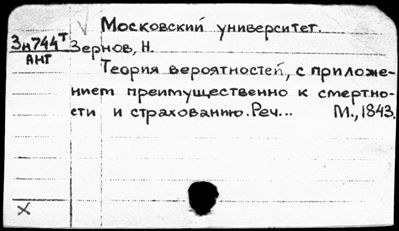 Московский университет.
Зн744т Зернов, Н.
АНГ
Теория вероятностей, с приложе-
нием преимущественно к смертно-
сти и страхованию. Реч... М., 1843.